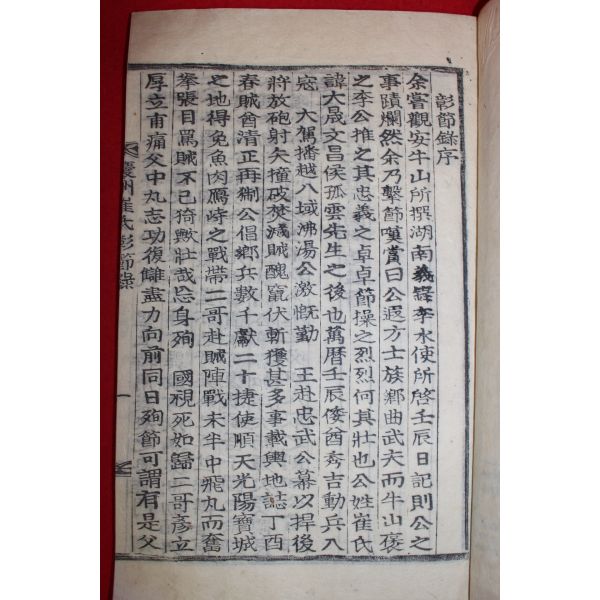 彰節錄序
余嘗觀安牛山所撰湖南義錄李水使所啓壬辰日記則公之
事蹟爛然余乃擊節嘆賞曰公遐方士族鄉曲武夫而牛山褒
之李公推之其忠義之卓卓節操之烈烈何其壯也公姓崔氏
諱大晟文昌侯孤雲先生之後也萬曆壬辰倭酋秀吉動兵入
寇 大駕播越八域沸湯公激慨勤 王赴忠武公幕以捍後
將放砲射矢撞破焚滅賊醜竄伏斬獲甚多事載輿地誌丁酉
春賊酋清正再猘公倡鄉兵數千獻二十捷使順天光陽寶城
之地得免魚肉鴈峙之戰帶二哥赴賊陣戰未半中飛丸而奮
拳張目罵賊不已猗歟壯哉忘身殉 國視死如歸二哥彥立
厚立甫痛父中丸志切復讎盡力向前同日殉節可謂有是父
慶州崔氏彰節錄 一